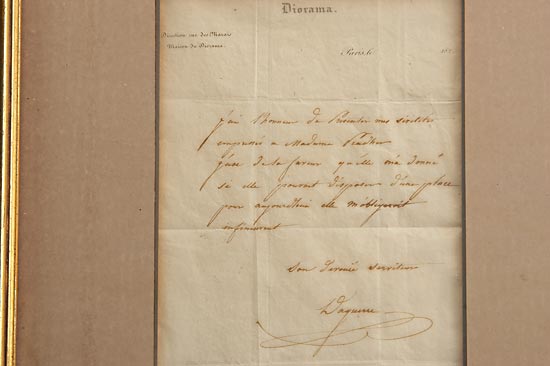 Diorama.
Direction rue des Marais
Maison du Diorama.
Paris, le 183
j'ai l'honneur de Présenter mes civilités
empressées a Madame
j'use de la faveur qu'elle m'a donné
si elle pouvait disposer d'une place
pour aujourd'hui elle m'obligeroit
infiniment
son dévoué serviteur
Daguerre